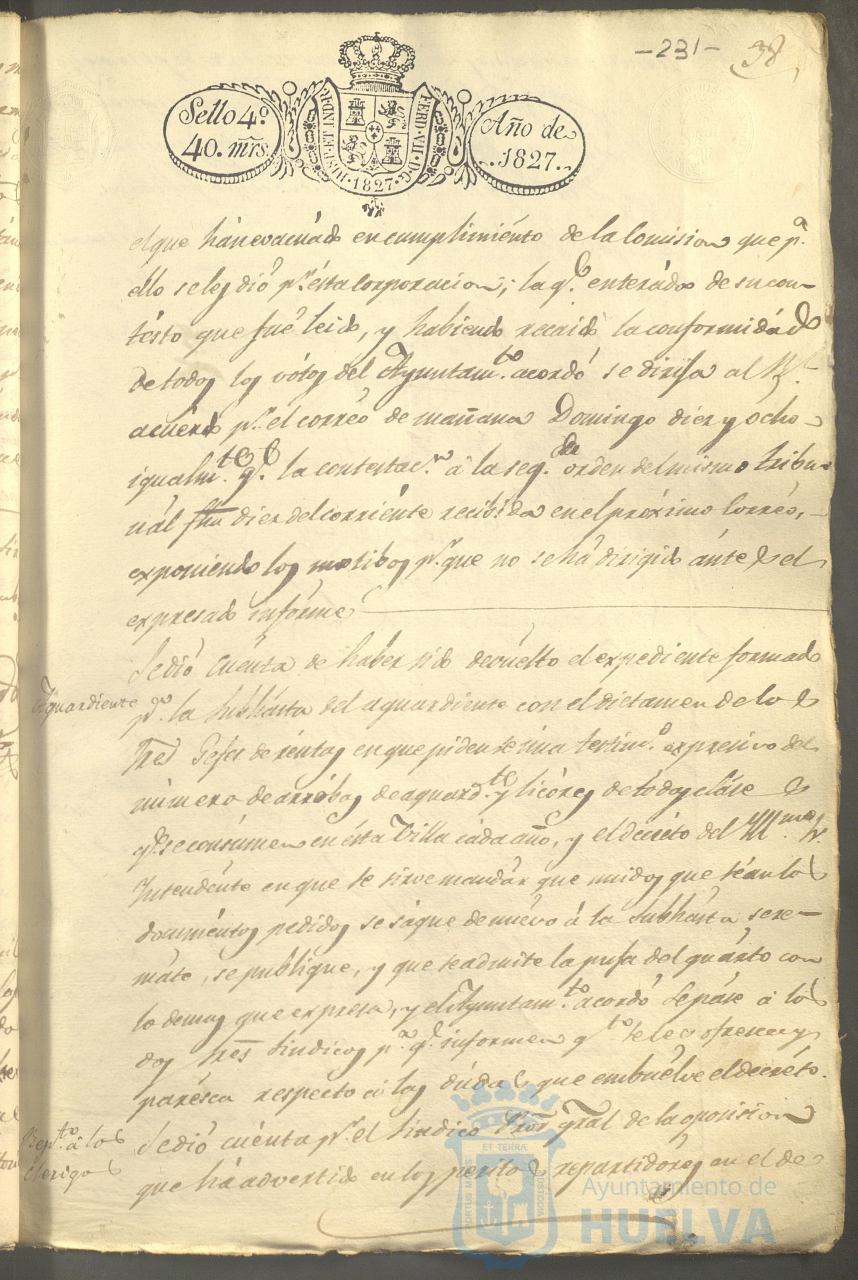 -231- 38
Sello 4º
40. mrs.
HISP. ET IND. R. FERD. VII. D. G.
·1827·
Año de
.1827.
el que han evacuado en cumplimiénto de la Comision que pª.
ello se les dió pr. ésta Corporacion; la qe. enterada de su con-
tésto que fué leido, y habiendo recaido la conformidád
de todos los vótos del Ayuntamto. acordó se dirija al Rl.
acuérdo pr. el corréo de mañana Domingo diez y ocho
igualmte. qe. la contestacn. á la segda. orden del mismo tribu-
nál fha diez del corriénte recibida en el próximo Corréo,
exponiendo los motibos pr. que no se há dirigido ántes el
expresado infórme
Aguardiente
Se dió cuénta de haber sido devuélto el expediente formado
pª. la subhásta del aguardiente con el dictamen de los
Tres Gefes de réntas en que piden se una testimº. expresivo del
número de arróbas de aguardte. y licóres de todas cláses
qe. se consúmen en ésta Villa cada año, y el decréto del Yllmo. Sr.
Intendénte en que se sirve mandár que unidos que séan los
documéntos pedidos se sáque de nuévo á la Subhásta, se re-
máte, se publique, y que se admita la puja del quárto con
lo demas que expresa, y el Ayuntamto. acordó se páse á los
dos Sres. Sindicos pª. qe. informen qto. se les ofresca y
parésca respecto á las dúdas que embuélve el decréto.
Repto. á los
Clerigos
Se dió cuénta pr. el Sindico Pror. gral de la oposision
que há advertido en los peritos repartidores en el de-
PORTUS MARIS ET TERRAE CUSTODIA
Ayuntamiento de
HUELVA